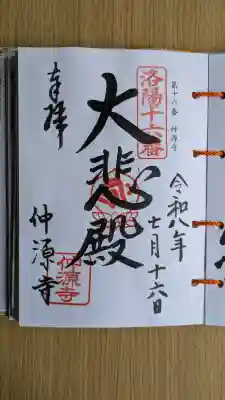 第十六番 仲源寺
令和八年
七月十六日
洛陽十六番
大悲殿
奉拝
仲源寺
仲源寺